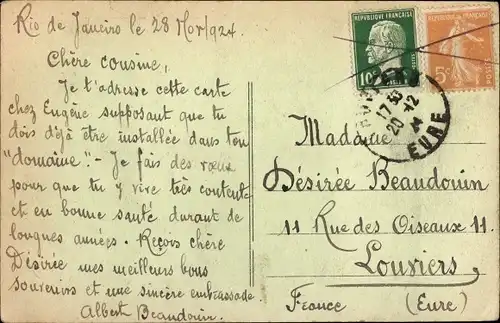 Rio de Janeiro le 28 Nov/924.
Chère cousine,
Je t'adresse cette carte
chez Eugène supposant que tu
dois déjà être installée dans ton
"domaine". - Je fais des vœux
pour que tu y vive très contente
et en bonne santé durant de
longues années. Reçois chère
Désirée mes meilleurs bons
souvenirs et une sincère embrassade.
Albert Beaudouin.
REPUBLIQUE FRANÇAISE
10c
REPUBLIQUE FRANÇAISE
5c
POSTES
17 30
20-12
24
EURE
Madame
Désirée Beaudouin
11 Rue des Oiseaux 11.
Louviers
France (Eure)